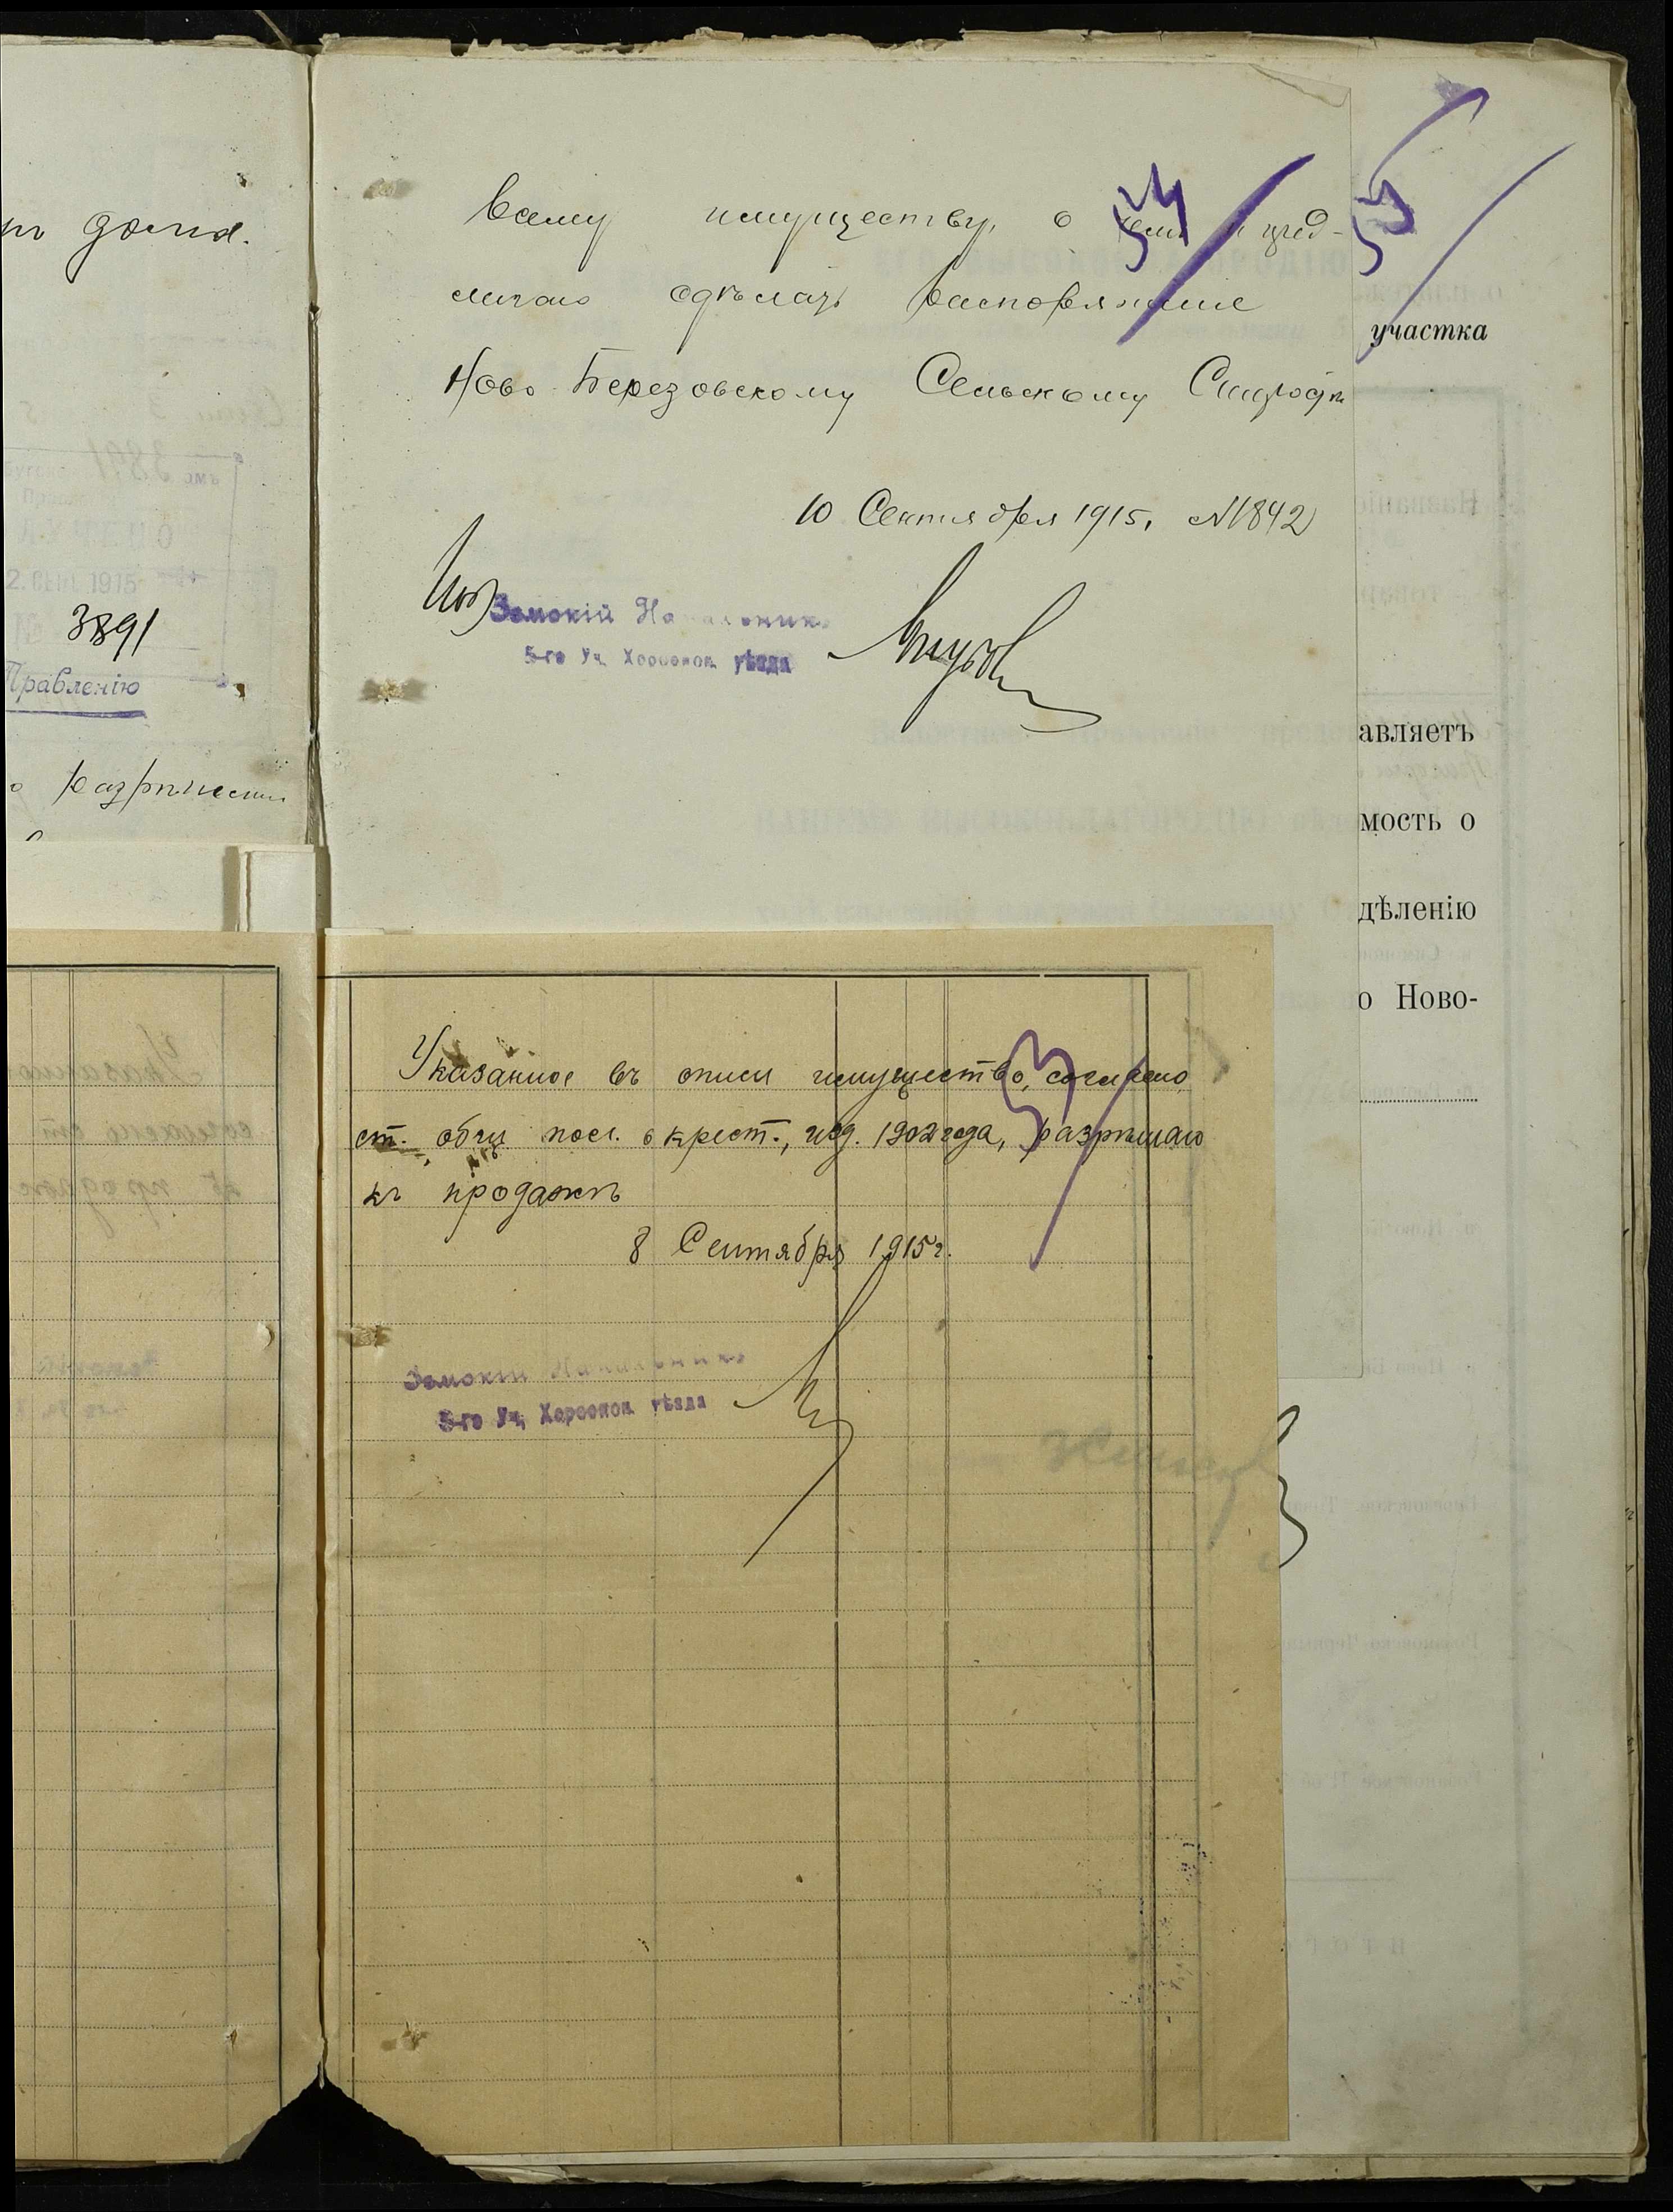 долга.
3891
Правленію
о разрѣшеніи
вому имуществу, о чемъ и пред-
лагаю сдѣлать распоряженіе
Ново-Березовскому Сельскому Старостѣ
10 Сентября 1915, №1842
Земскій Начальникъ
5-го Уч. Херсонск. уѣзда
53
53
участка
авляетъ
мость о
дѣленію
о Ново-
53
Указанное въ описи имущество, согласно
ст. общ. пол. о крест., изд. 1902 года, разрѣшаю
къ продажѣ
8 Сентября 1915 г.
Земскій Начальникъ
5-го Уч. Херсонск. уѣзда